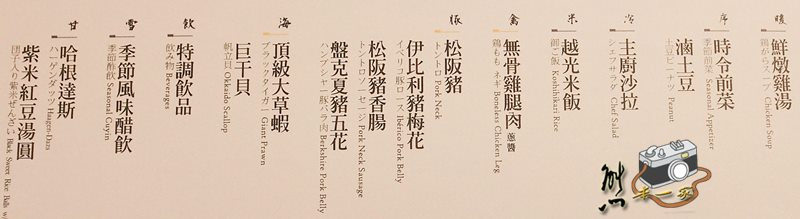 暖
鮮燉雞湯
鶏がらスープ Chicken Soup
序
時令前菜
季節前菜 Seasonal Appetizer
滷土豆
土豆ピーナツ Peanut
主廚沙拉
シェフサラダ Chef Salad
米
越光米飯
御ご飯 Koshihikari Rice
禽
無骨雞腿肉 蔥醬
鶏もも ネギ Boneless Chicken Leg
豚
松阪豬
トントロ Pork Neck
伊比利豬梅花
イベリコ豚ロース Ibérico Pork Belly
松阪豬香腸
トントロソーセージ Pork Neck Sausage
盤克夏豬五花
ハンプシャー豚バラ肉 Berkshire Pork Belly
海
頂級大草蝦
ブラックタイガー Giant Prawn
巨干貝
帆立貝 Okkaido Scallop
飲
特調飲品
飲み物 Beverages
雪
季節風味醋飲
季節酢飲 Seasonal Cuyin
甘
哈根達斯
ハーゲンダッツ Haagen-Dazs
紫米紅豆湯圓
団子入り紫米ぜんざい Black Sweet Rice Balls w/